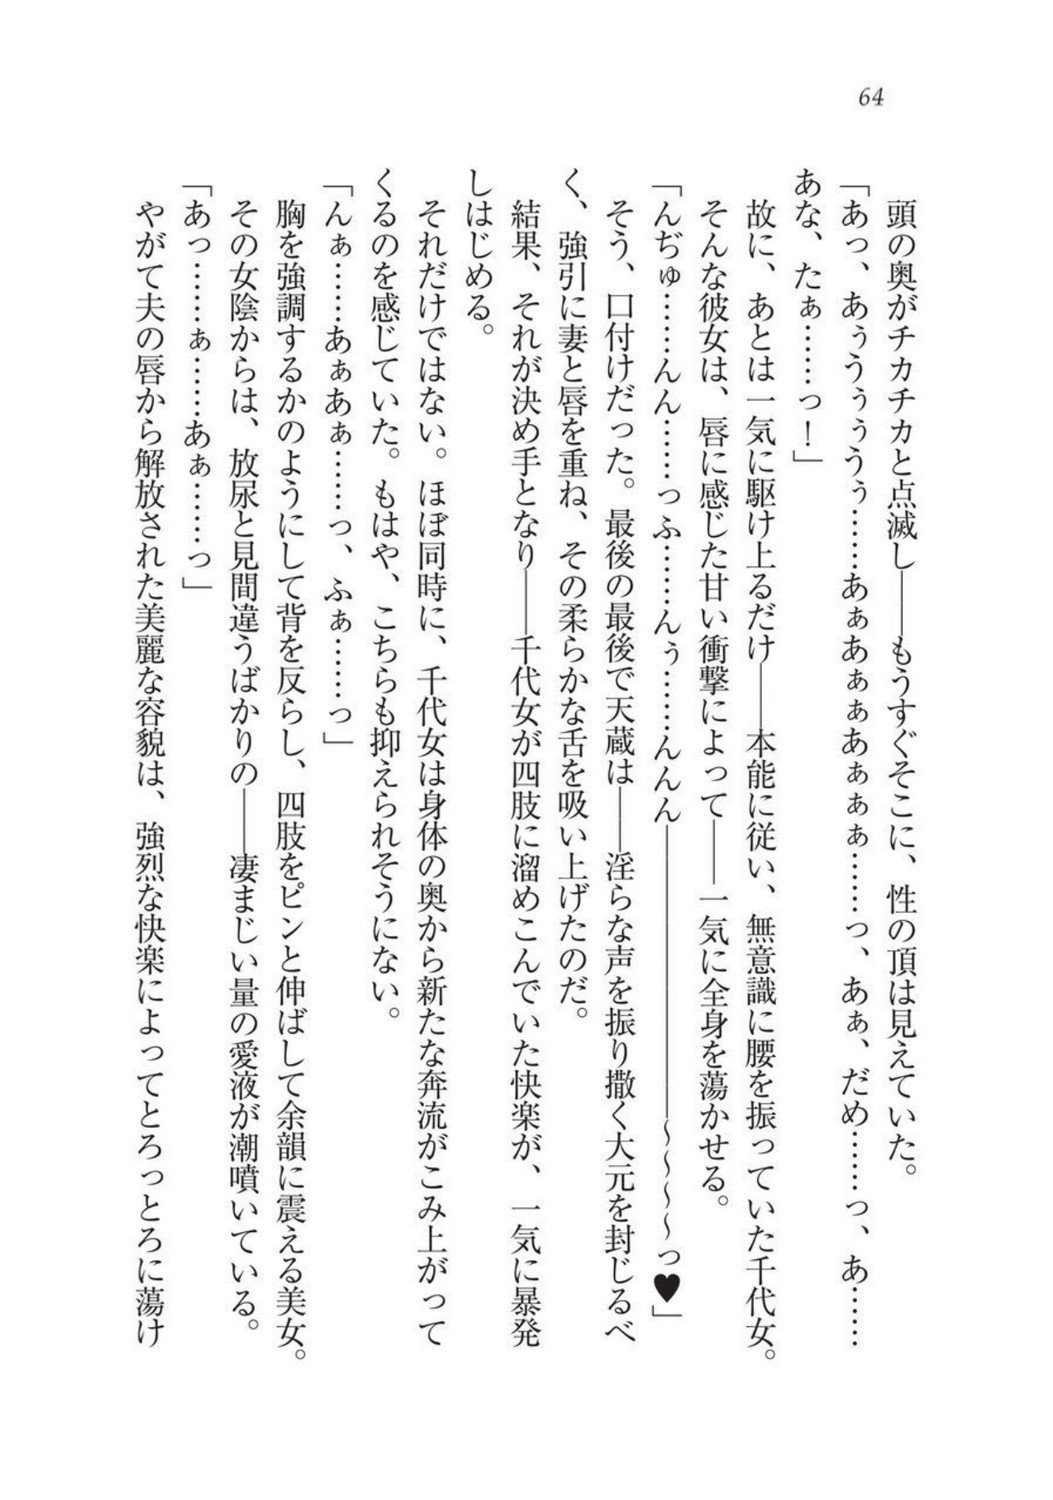 64
頭の奥がチカチカと点滅し――もうすぐそこに、性の頂は見えていた。
「あっ、あぅうぅぅうぅ……あぁあぁぁあぁぁぁ……っ、あぁ、だめ……っ、あ……
あな、たぁ……っ！」
故に、あとは一気に駆け上るだけ――本能に従い、無意識に腰を振っていた千代女。
そんな彼女は、唇に感じた甘い衝撃によって――一気に全身を蕩かせる。
「んぢゅ……んん……っふ……んぅ……んんん――――――――～～～～っ♥」
そう、口付けだった。最後の最後で天蔵は――淫らな声を振り撒く大元を封じるべ
く、強引に妻と唇を重ね、その柔らかな舌を吸い上げたのだ。
結果、それが決め手となり――千代女が四肢に溜めこんでいた快楽が、一気に暴発
しはじめる。
それだけではない。ほぼ同時に、千代女は身体の奥から新たな奔流がこみ上がって
くるのを感じていた。もはや、こちらも抑えられそうにない。
「んぁ……あぁあぁ……っ、ふぁ……っ」
胸を強調するかのようにして背を反らし、四肢をピンと伸ばして余韻に震える美女。
その女陰からは、放尿と見間違うばかりの――凄まじい量の愛液が潮噴いている。
「あっ……ぁ……あぁ……っ」
やがて夫の唇から解放された美麗な容貌は、強烈な快楽によってとろっとろに蕩け